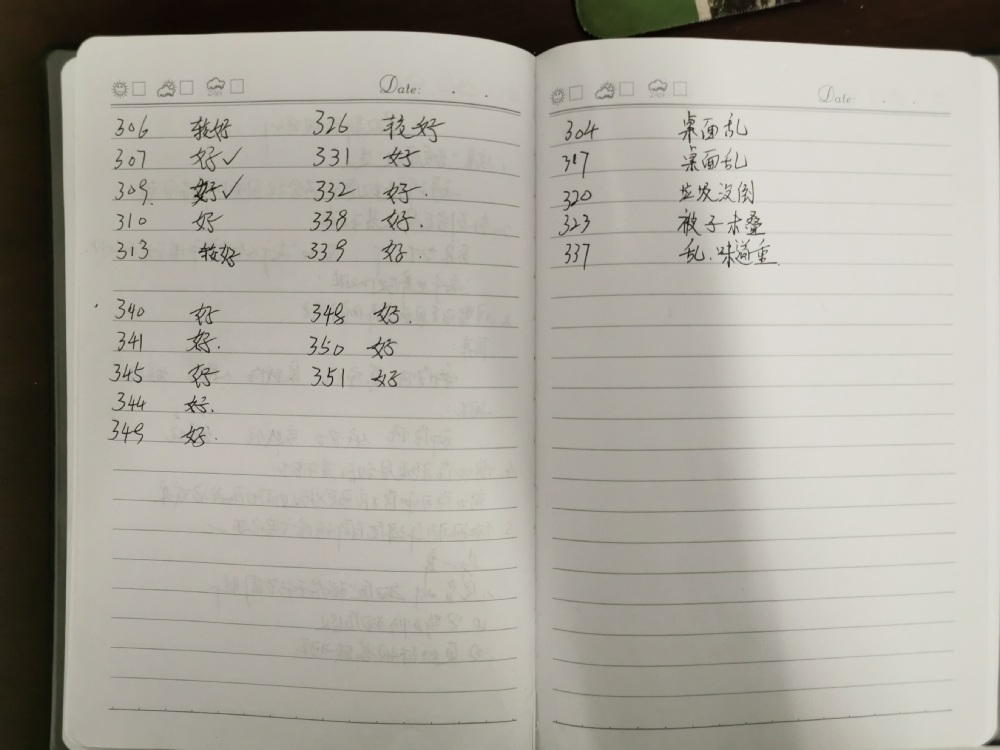 Date: . .
306 较好 326 较好
307 好✓ 331 好
309. 好✓ 332 好.
310 好 338 好.
313 较好 339 好.
340 好 348 好.
341 好. 350 好
345 好 351 好
344 好.
349 好.
Date: . .
304 桌面乱
317 桌面乱
320 垃圾没倒
323 被子未叠
337 乱.味道重